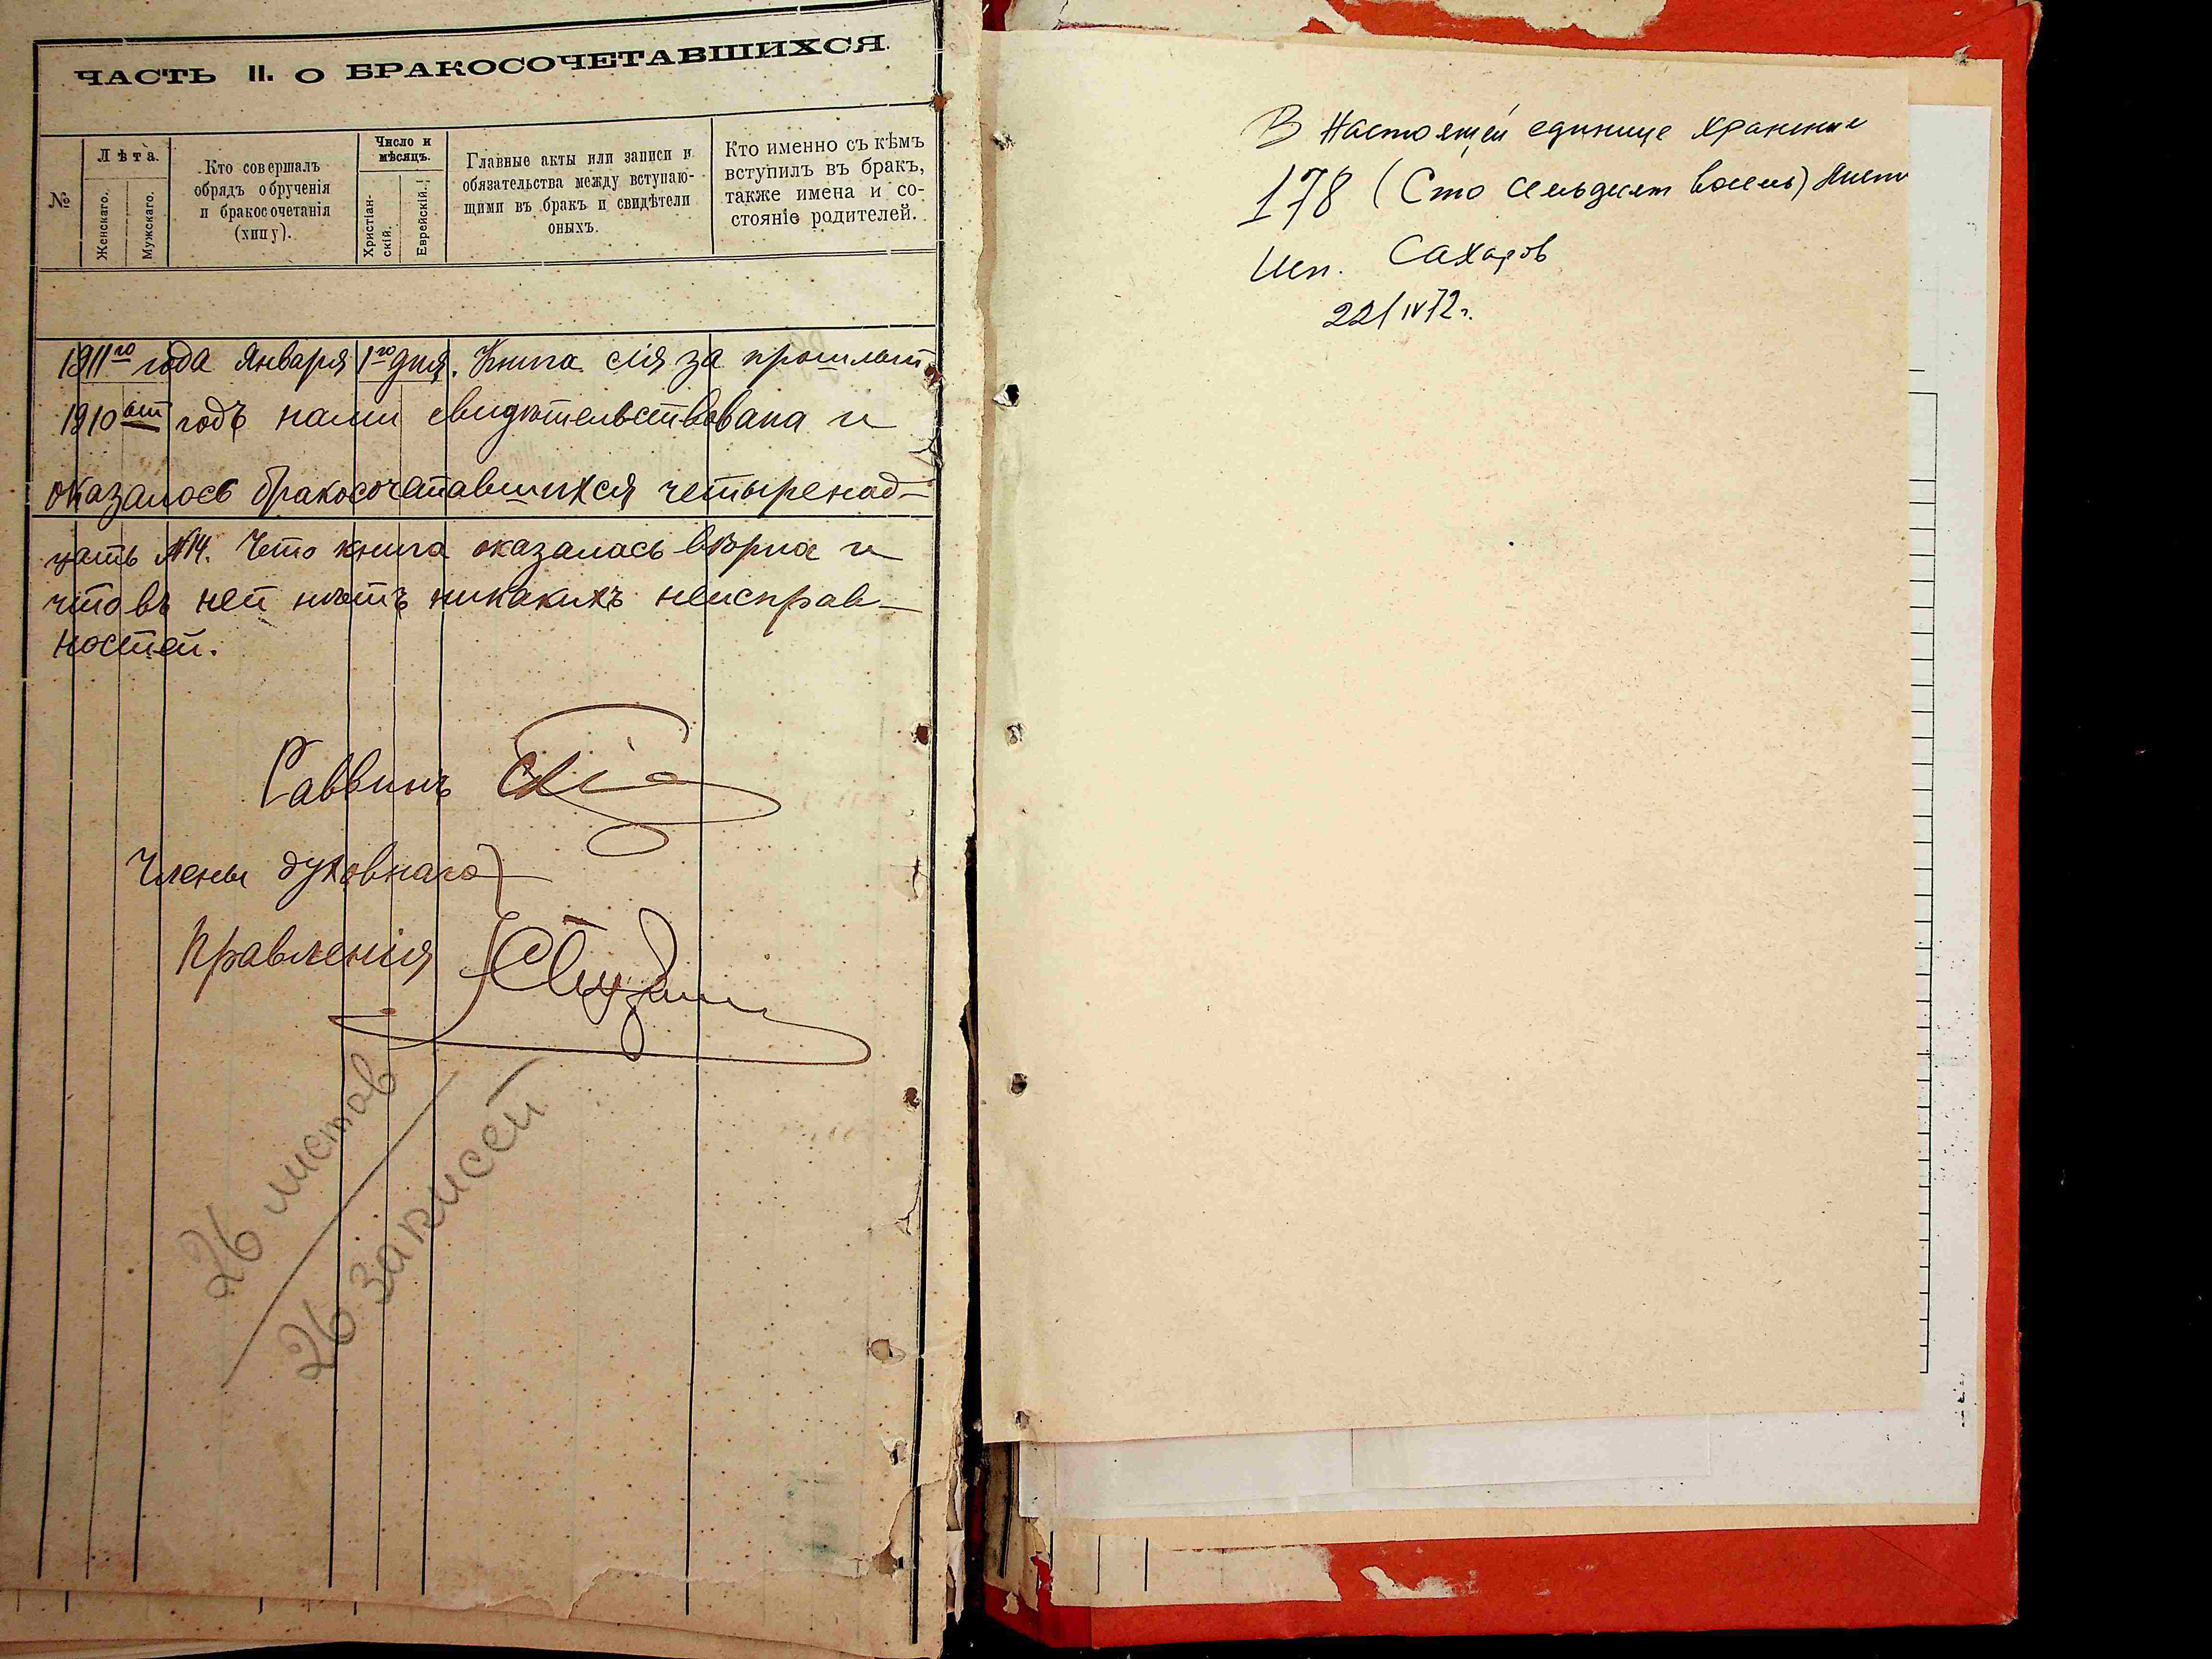 ЧАСТЬ II. О БРАКОСОЧЕТАВШИХСЯ.
№
Лѣта.
Женскаго.
Мужскаго.
Кто совершалъ
обрядъ обрученія
и бракосочетанія
(хипу).
Число и
мѣсяцъ.
Христіан-
скій.
Еврейскій.
Главные акты или записи и
обязательства между вступаю-
щими въ бракъ и свидѣтели
оныхъ.
Кто именно съ кѣмъ
вступилъ въ бракъ,
также имена и со-
стояніе родителей.
1911го года Января 1го дня. Книга сія за прошлый
1910ый годъ нами свидѣтельствована и
оказалось бракосочетавшихся четыренад-
цать №14. Что книга оказалась вѣрна и
что въ ней нѣтъ никакихъ неисправ-
ностей.
Раввинъ
Члены духовнаго
Правленія
26 листов
26 записей
В настоящей единице хранения
178 (Сто семьдесят восемь) листов
Исп. Сахаров
22/IV 72 г.